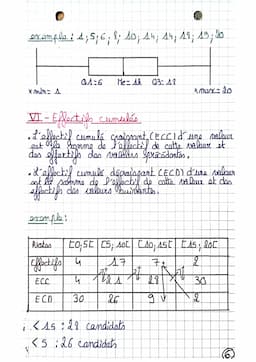 exemple : 1, 5, 6, 8, 10, 14, 14, 18, 19, 20
Q1=6 Me=12 Q3=18
xmin= 1 xmax=20
VI - Effectifs cumulés
. L'effectif cumulé croissant (ECC) d'une valeur
est la somme de l'effectif de cette valeur et
des effectifs des valeurs précédentes.
. L'effectif cumulé décroissant (ECD) d'une valeur
est la somme de l'effectif de cette valeur et des
effectifs des valeurs suivantes.
exemple :
Notes [0,5[ [5,10[ [10,15[ [15,20[
Effectifs 4 17 7 2
ECC 4 21 28 30
ECD 30 26 9 2
< 15 : 28 candidats
< 5 : 26 candidats
6